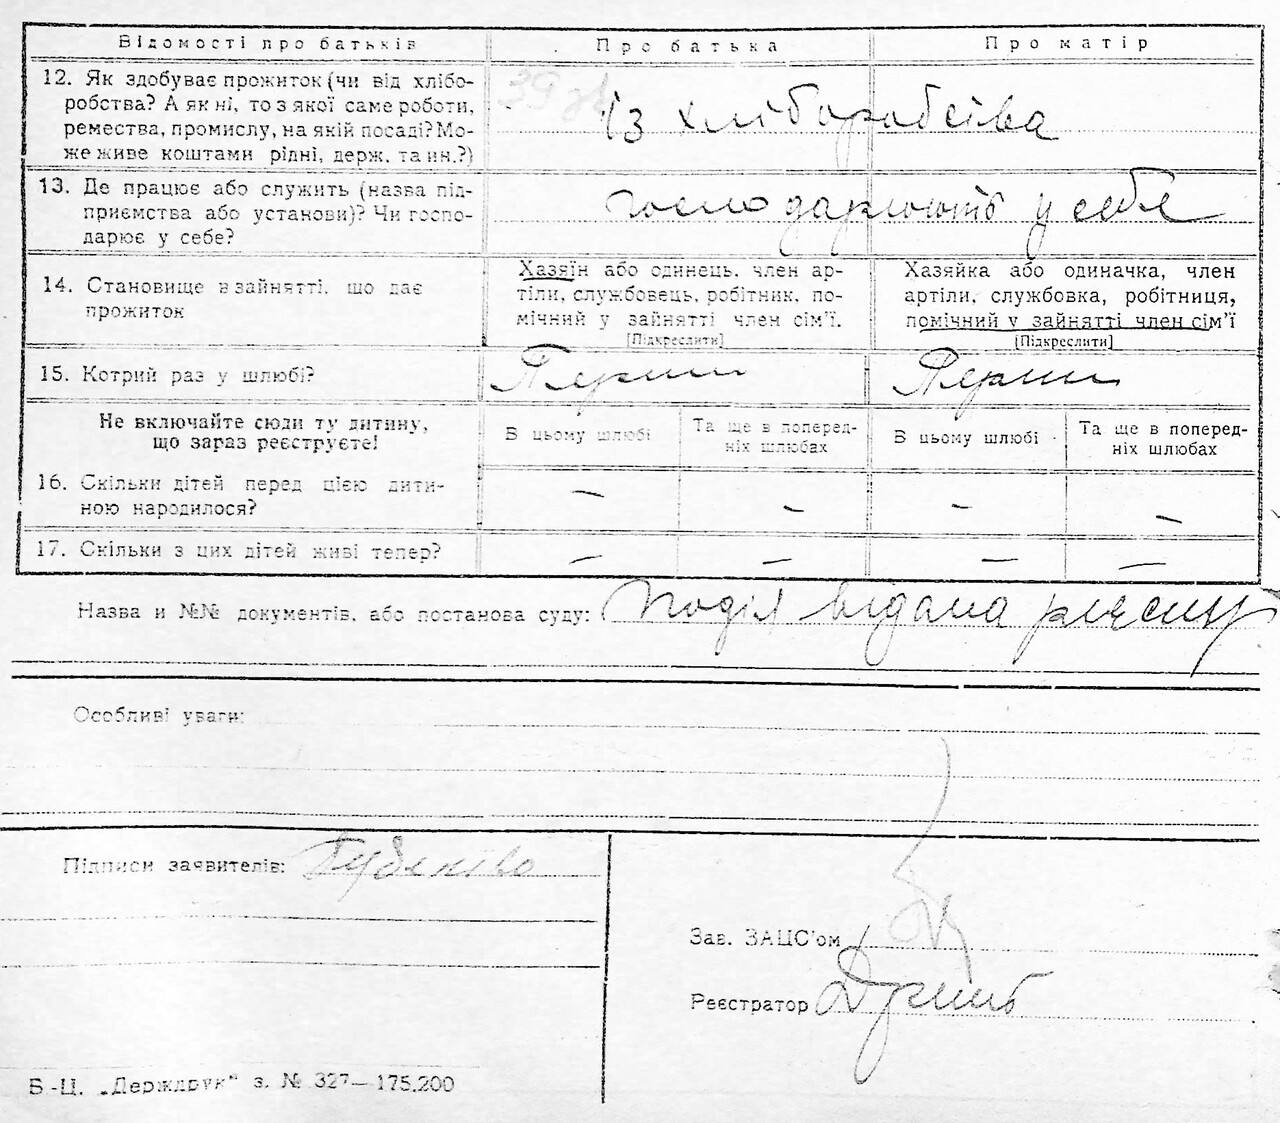 Відомості про батьків Про батька Про матір
12. Як здобуває прожиток (чи від хлібо-
робства? А як ні, то з якої саме роботи,
ремества, промислу, на якій посаді? Мо-
же живе коштами рідні, держ. та ин.?)
із хліборобства
13. Де працює або служить (назва під-
приємства або установи)? Чи госпо-
дарює у себе?
господарюють у себе
14. Становище в зайнятті, що дає
прожиток
Хазяїн або одинець, член ар-
тіли, службовець, робітник, по-
мічний у зайнятті член сім'ї.
[Підкреслити]
Хазяйка або одиначка, член
артіли, службовка, робітниця,
помічний у зайнятті член сім'ї
[Підкреслити]
15. Котрий раз у шлюбі? Перший Перший
Не включайте сюди ту дитину,
що зараз реєструєте!
В цьому шлюбі
Та ще в поперед-
ніх шлюбах
В цьому шлюбі
Та ще в поперед-
ніх шлюбах
16. Скільки дітей перед цією дити-
ною народилося?
– – – –
17. Скільки з цих дітей живі тепер?
– – – –
Назва и №№ документів, або постанова суду: видана
Особливі уваги:
Підписи заявителів:
Зав. ЗАЦС'ом
Реєстратор
Б.-Ц. „Держдрук" з. № 327—175.200